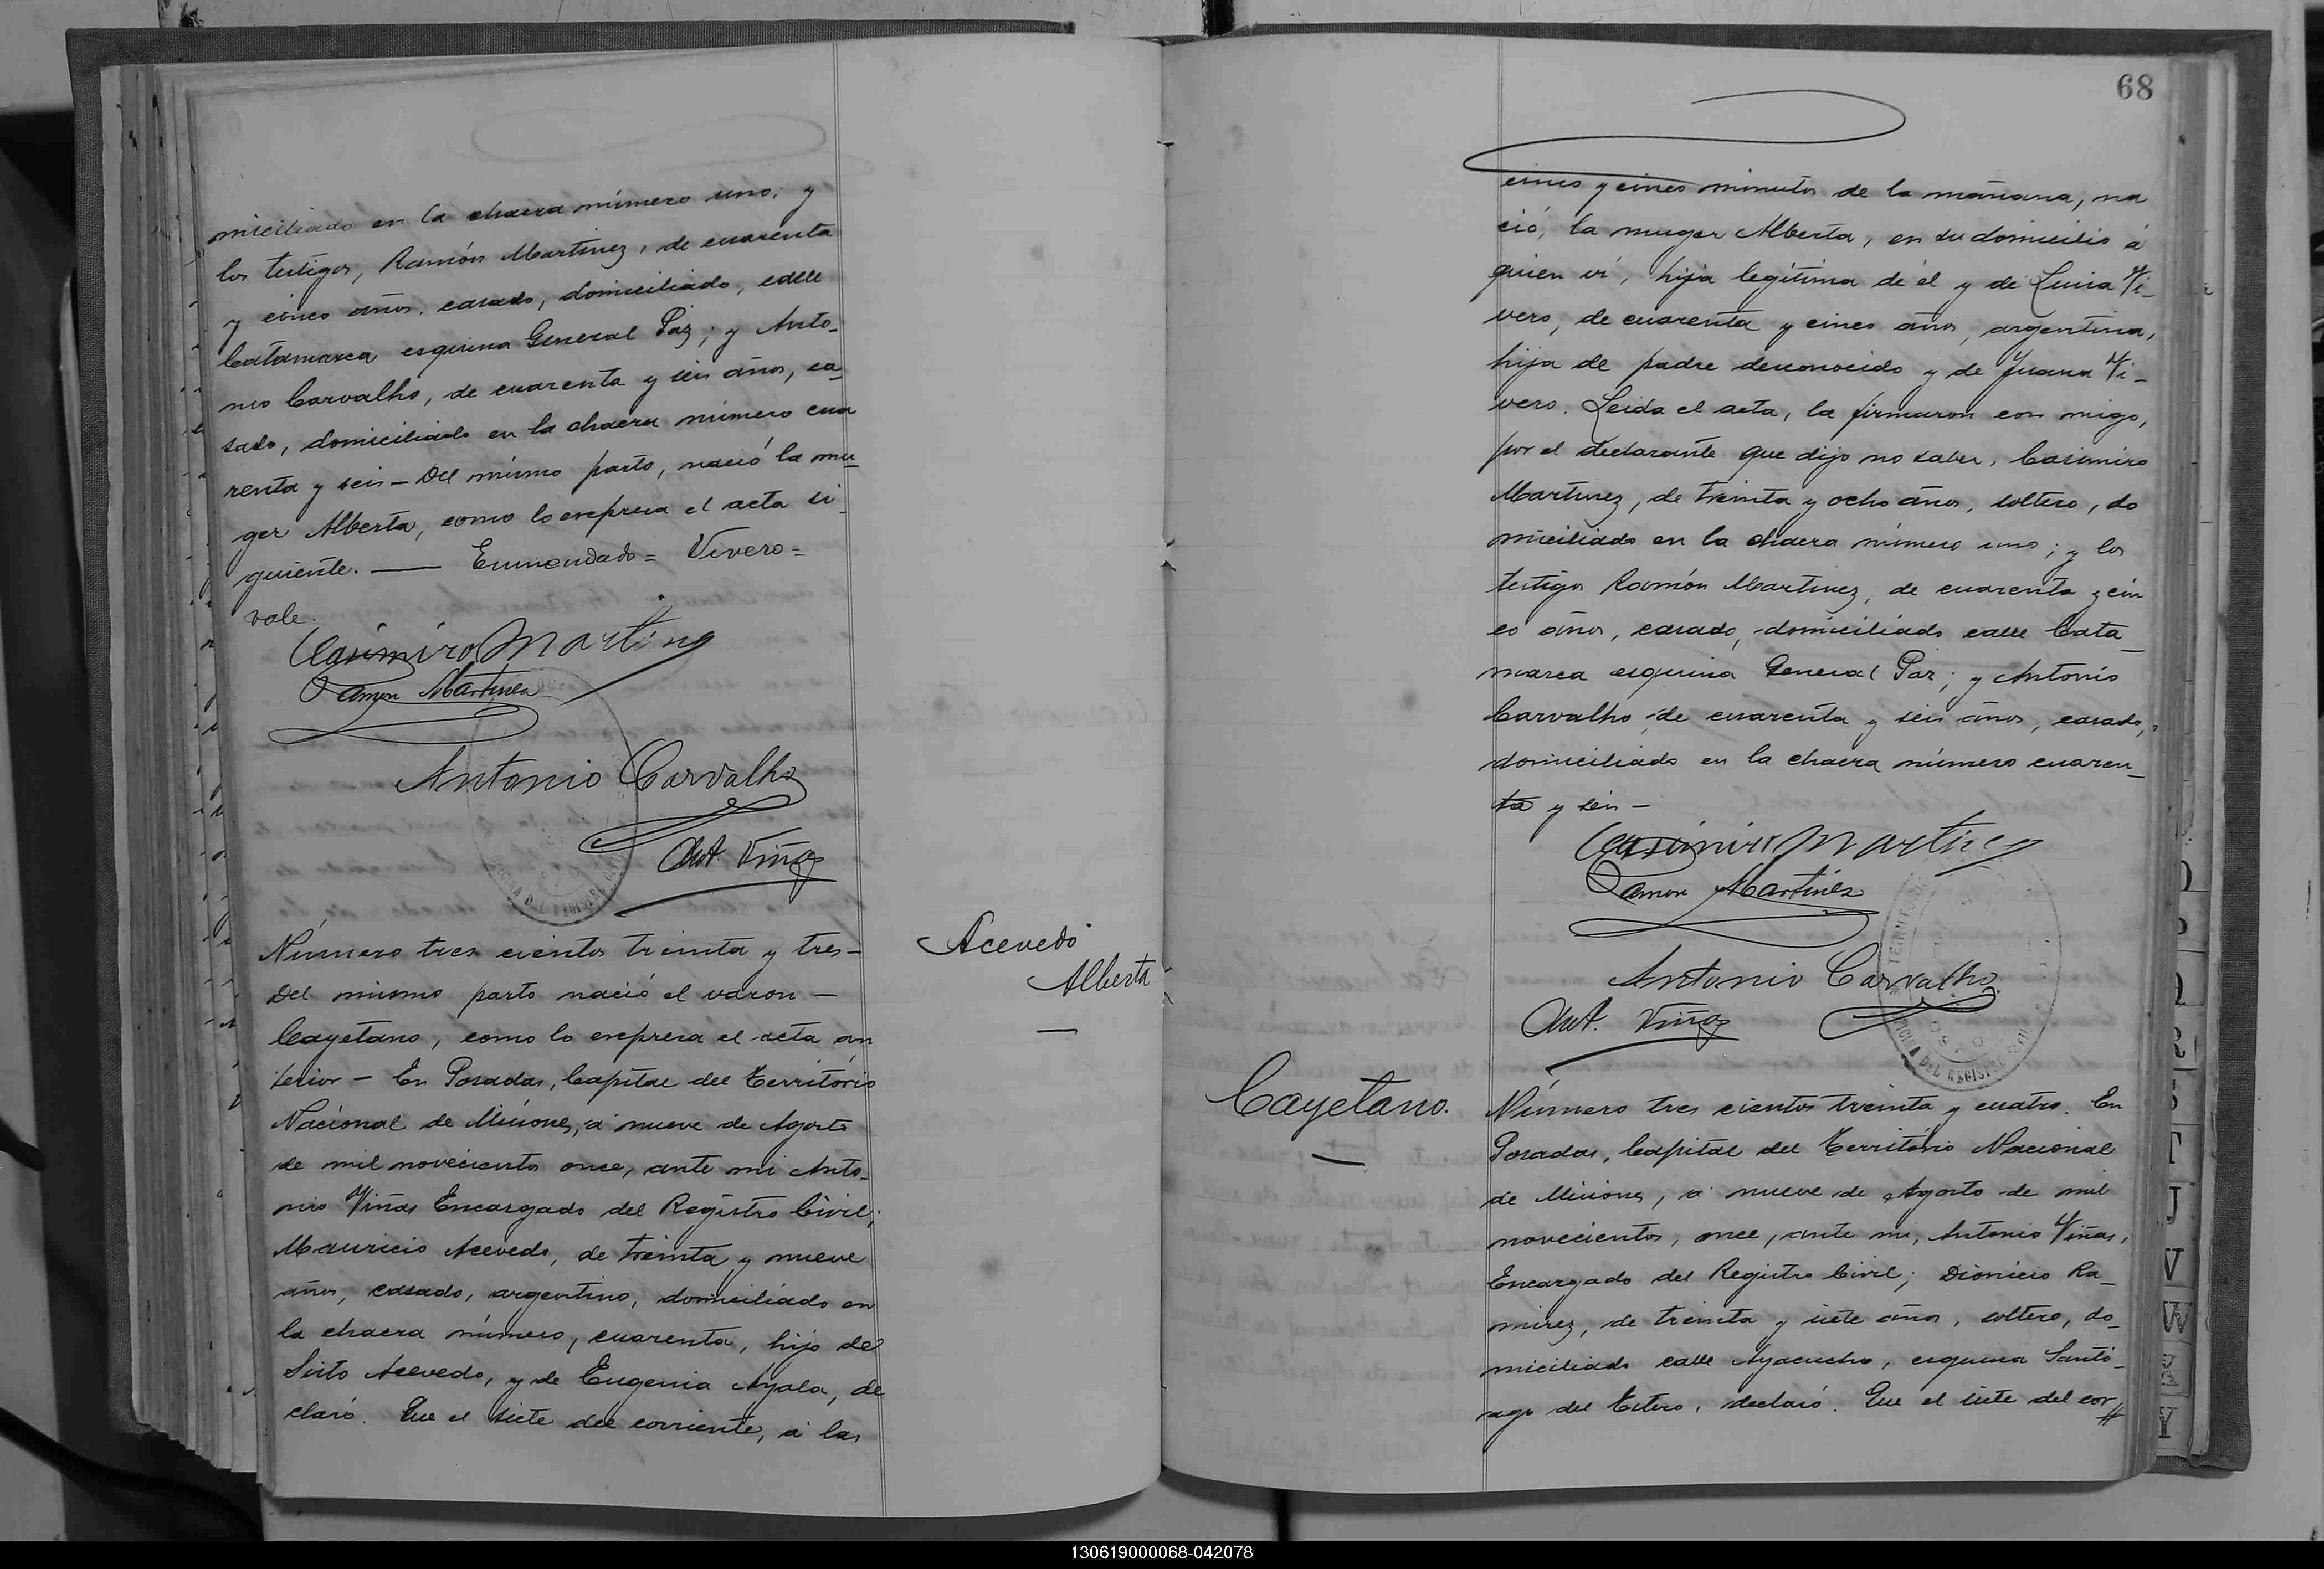 miciliado en la chacra número uno; y
los testigos, Ramón Martinez, de cuarenta
y cinco años, casado, domiciliado, calle
Catamarca esquina General Paz; y Anto-
nio Carvalho, de cuarenta y seis años, ca-
sado, domiciliado en la chacra número cua
renta y seis — Del mismo parto, nació la mu-
ger Alberta, como lo expresa el acta si-
guiente. — Enmendado = Vivero =
vale.
Casimiro Martinez
Ramon Martinez
Antonio Carvalho
Ant. Viñas
Número tres cientos treinta y tres —
Del mismo parto nació el varon —
Cayetano, como lo expresa el acta an
terior — En Posadas, Capital del Territorio
Nacional de Misiones, á nueve de Agosto
de mil novecientos once, ante mi Anto-
nio Viñas Encargado del Registro Civil;
Mauricio Acevedo, de treinta y nueve
años, casado, argentino, domiciliado en
la chacra número, cuarenta, hijo de
Sisto Acevedo, y de Eugenia Ayala, de
claró. Que el siete del corriente, á las
Acevedo
Alberta
—
68
cinco y cinco minutos de la mañana, na
ció, la muger Alberta, en su domicilio á
quien ví, hija legítima de él y de Lucia Vi-
vero, de cuarenta y cinco años, argentina,
hija de padre desconocido y de Juana Vi-
vero. Leida el acta, la firmaron con migo,
por el declarante que dijo no saber, Casimiro
Martinez, de treinta y ocho años, soltero, do
miciliado en la chacra número uno; y los
testigos Ramón Martinez, de cuarenta y cin
co años, casado, domiciliado calle Cata-
marca esquina General Paz; y Antonio
Carvalho, de cuarenta y seis años, casado,
domiciliado en la chacra número cuaren-
ta y seis —
Casimiro Martinez
Ramon Martinez
Antonio Carvalho
Ant. Viñas
OFICINA DEL REGISTRO CIVIL
Cayetano.
—
Número tres cientos treinta y cuatro. En
Posadas, Capital del Territorio Nacional
de Misiones, á nueve de Agosto de mil
novecientos, once, ante mi, Antonio Viñas,
Encargado del Registro Civil; Dionicio Ra-
mirez, de treinta y siete años, soltero, do-
miciliado calle Ayacucho, esquina Santi-
ago del Estero, declaró. Que el siete del cor//
R
T
J
V
W
X
Y
130619000068-042078